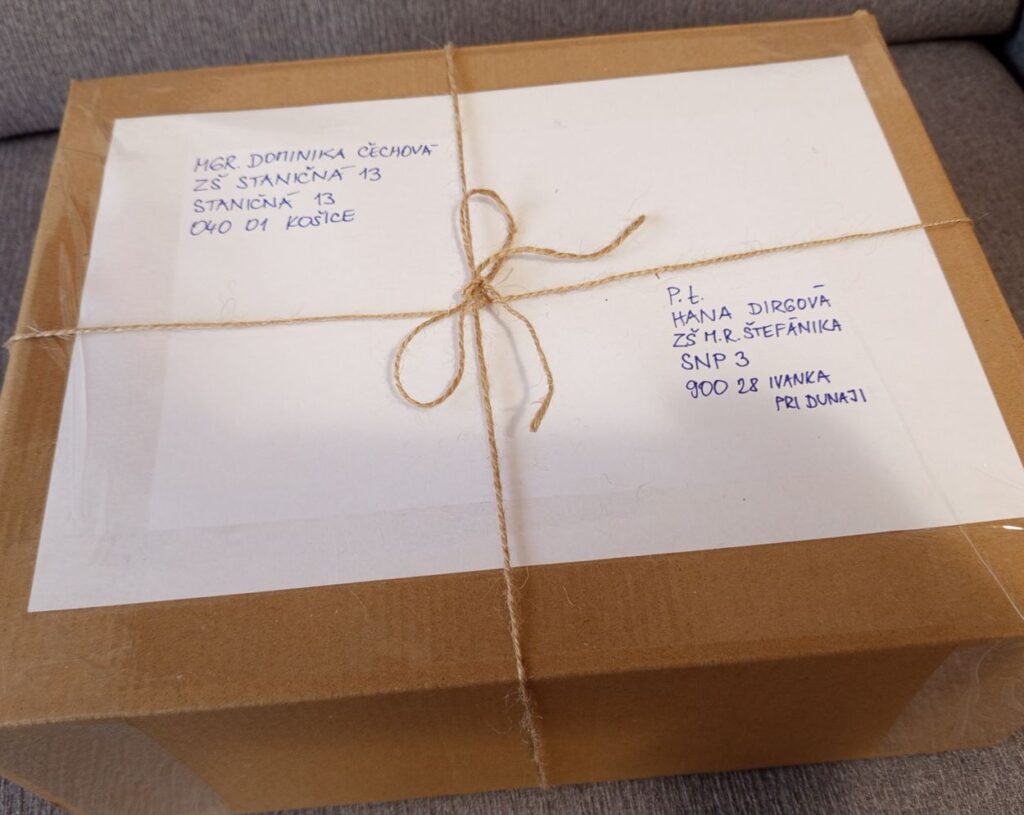 MGR. DOMINIKA ČECHOVÁ
ZŠ STANIČNÁ 13
STANIČNÁ 13
040 01 KOŠICE
P. t.
HANA DIRGOVÁ
ZŠ M.R. ŠTEFÁNIKA
SNP 3
900 28 IVANKA
PRI DUNAJI